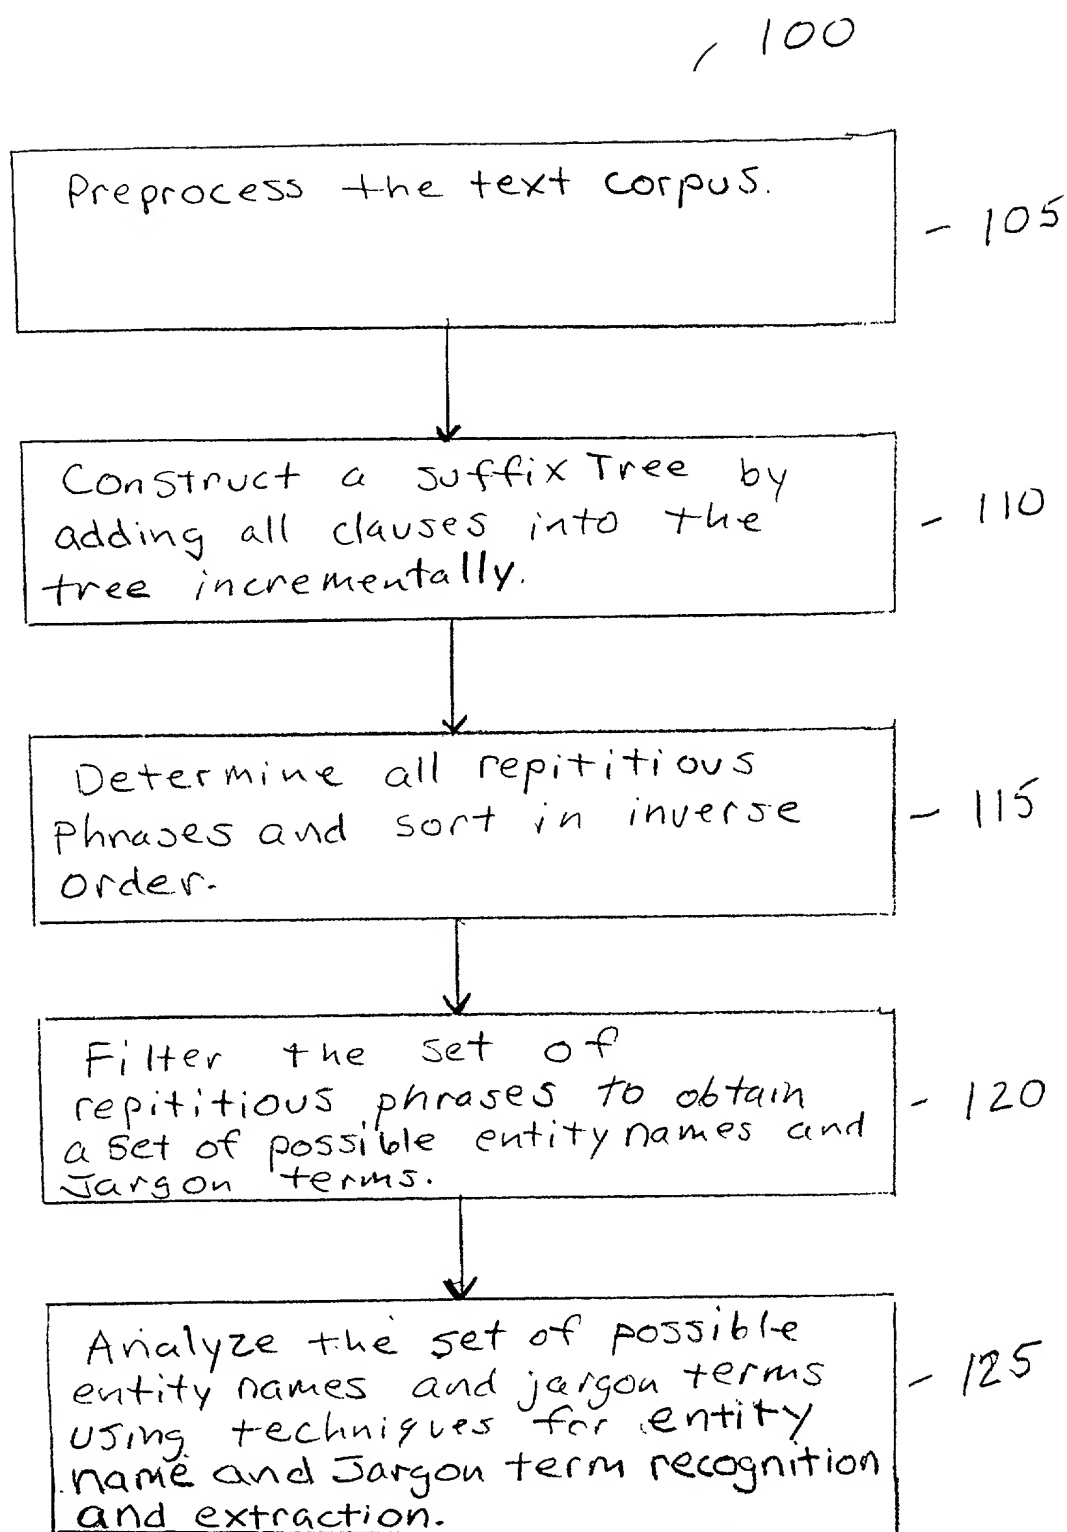 100
Preprocess the text corpus.
- 105
Construct a suffix Tree by
adding all clauses into the
tree incrementally.
- 110
Determine all repititious
phrases and sort in inverse
order.
- 115
Filter the set of
repititious phrases to obtain
a set of possible entity names and
Jargon terms.
- 120
Analyze the set of possible
entity names and jargon terms
using techniques for entity
name and Jargon term recognition
and extraction.
- 125